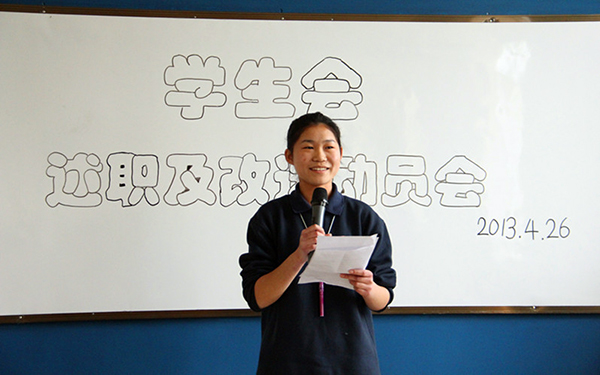 学生会
述职及改动员会
2013.4.26